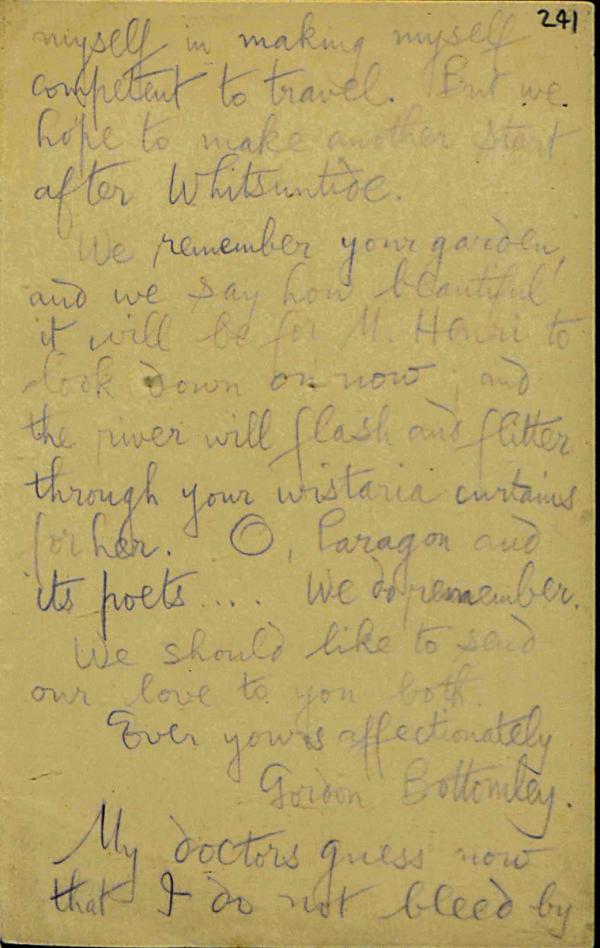 241
myself in making myself
competent to travel. But we
hope to make another start
after Whitsuntide.
We remember your garden,
and we say how beautiful
it will be for M. Henri to
look down on now; and
the river will flash and flitter
through your wistaria curtains
for her. O, Paragon and
its poets.... We do remember.
We should like to send
our love to you both.
Ever yours affectionately
Gordon Bottomley.
My doctors guess now
that I do not bleed by